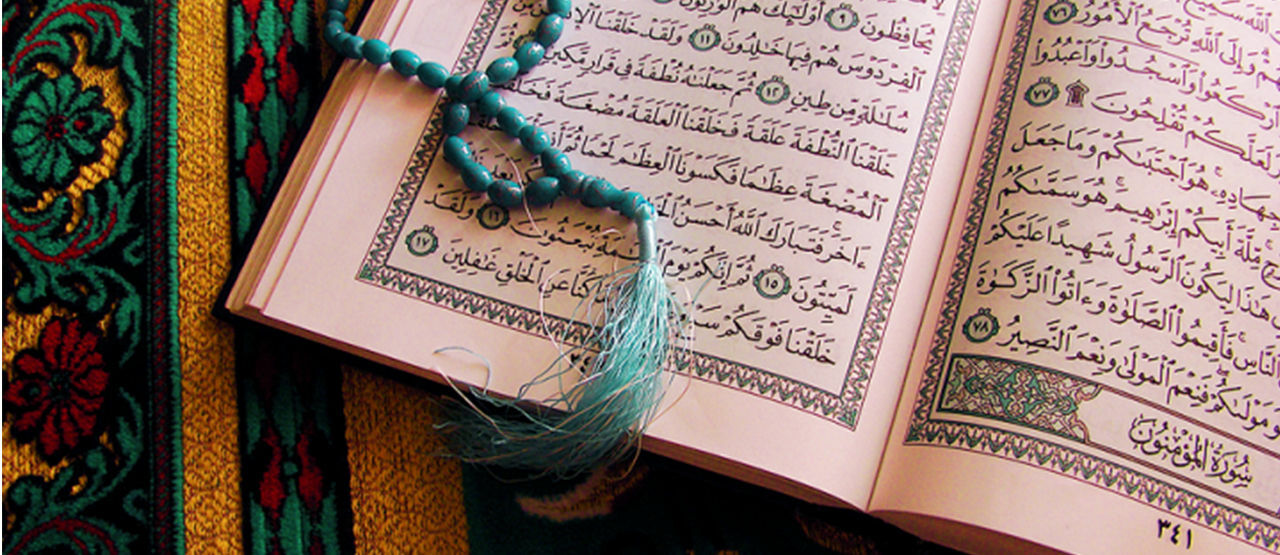 ٱللَّهَ سَمِيعٌ
وَإِلَى ٱللَّهِ تُرْجَعُ ٱلْأُمُورُ ٧٦
ٱرْكَعُوا۟ وَٱسْجُدُوا۟ وَٱعْبُدُوا۟
لَعَلَّكُمْ تُفْلِحُونَ ۩ ٧٧
جِهَادِهِۦ هُوَ ٱجْتَبَىٰكُمْ وَمَا جَعَلَ
مِّلَّةَ أَبِيكُمْ إِبْرَٰهِيمَ هُوَ سَمَّىٰكُمُ
هَٰذَا لِيَكُونَ ٱلرَّسُولُ شَهِيدًا عَلَيْكُمْ
ٱلنَّاسِ فَأَقِيمُوا۟ ٱلصَّلَوٰةَ وَءَاتُوا۟ ٱلزَّكَوٰةَ
مَوْلَىٰكُمْ فَنِعْمَ ٱلْمَوْلَىٰ وَنِعْمَ ٱلنَّصِيرُ ٧٨
سُورَةُ المُؤْمِنُونَ
٣٤١
يُحَافِظُونَ ٩ أُو۟لَٰٓئِكَ هُمُ ٱلْوَٰرِثُونَ
ٱلْفِرْدَوْسَ هُمْ فِيهَا خَٰلِدُونَ ١١ وَلَقَدْ خَلَقْنَا ٱلْإِنسَٰنَ مِن
سُلَٰلَةٍ مِّن طِينٍ ١٢ ثُمَّ جَعَلْنَٰهُ نُطْفَةً فِى قَرَارٍ مَّكِينٍ
خَلَقْنَا ٱلنُّطْفَةَ عَلَقَةً فَخَلَقْنَا ٱلْعَلَقَةَ مُضْغَةً فَخَلَقْنَا
ٱلْمُضْغَةَ عِظَٰمًا فَكَسَوْنَا ٱلْعِظَٰمَ لَحْمًا ثُمَّ
ءَاخَرَ فَتَبَارَكَ ٱللَّهُ أَحْسَنُ
لَمَيِّتُونَ ١٥ ثُمَّ إِنَّكُمْ يَوْمَ تُبْعَثُونَ ١٦ وَلَقَدْ
خَلَقْنَا فَوْقَكُمْ كُنَّا عَنِ ٱلْخَلْقِ غَٰفِلِينَ ١٧